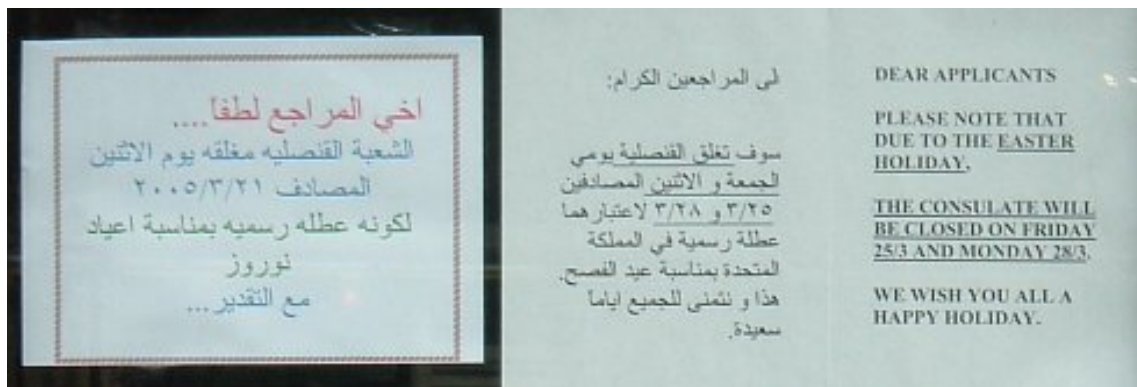 اخي المراجع لطفا....
الشعبة القنصليه مغلقه يوم الاثنين
المصادف ٢٠٠٥/٣/٢١
لكونه عطله رسميه بمناسبة اعياد
نوروز
مع التقدير...
لى المراجعين الكرام:
سوف تغلق القنصلية يومي
الجمعة و الاثنين المصادفين
٣/٢٥ و ٣/٢٨ لاعتبارهما
عطلة رسمية في المملكة
المتحدة بمناسبة عيد الفصح.
هذا و نتمنى للجميع اياماً
سعيدة.
DEAR APPLICANTS
PLEASE NOTE THAT
DUE TO THE EASTER
HOLIDAY,
THE CONSULATE WILL
BE CLOSED ON FRIDAY
25/3 AND MONDAY 28/3.
WE WISH YOU ALL A
HAPPY HOLIDAY.